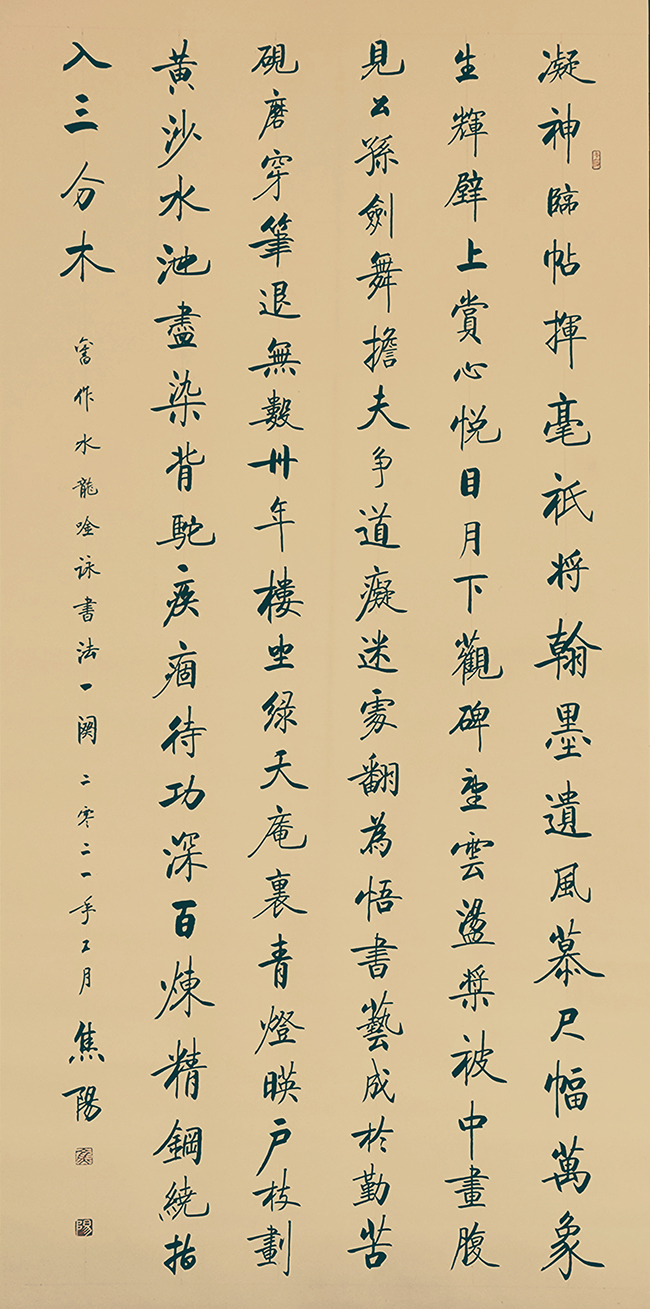 凝神臨帖揮毫祇将翰墨遺風慕尺幅萬象
生輝壁上賞心悦目月下觀碑坐雲盪槳被中畫腹
見公孫劍舞擔夫争道癡迷處翻為悟書藝成於勤苦
硯磨穿筆退無數卅年樓坐绿天庵裏青燈暎户枝劃
黄沙水池盡染背駝疾痼待功深百煉精鋼繞指
入三分木
舊作水龍唫詠書法一阕二零二一年五月焦陽